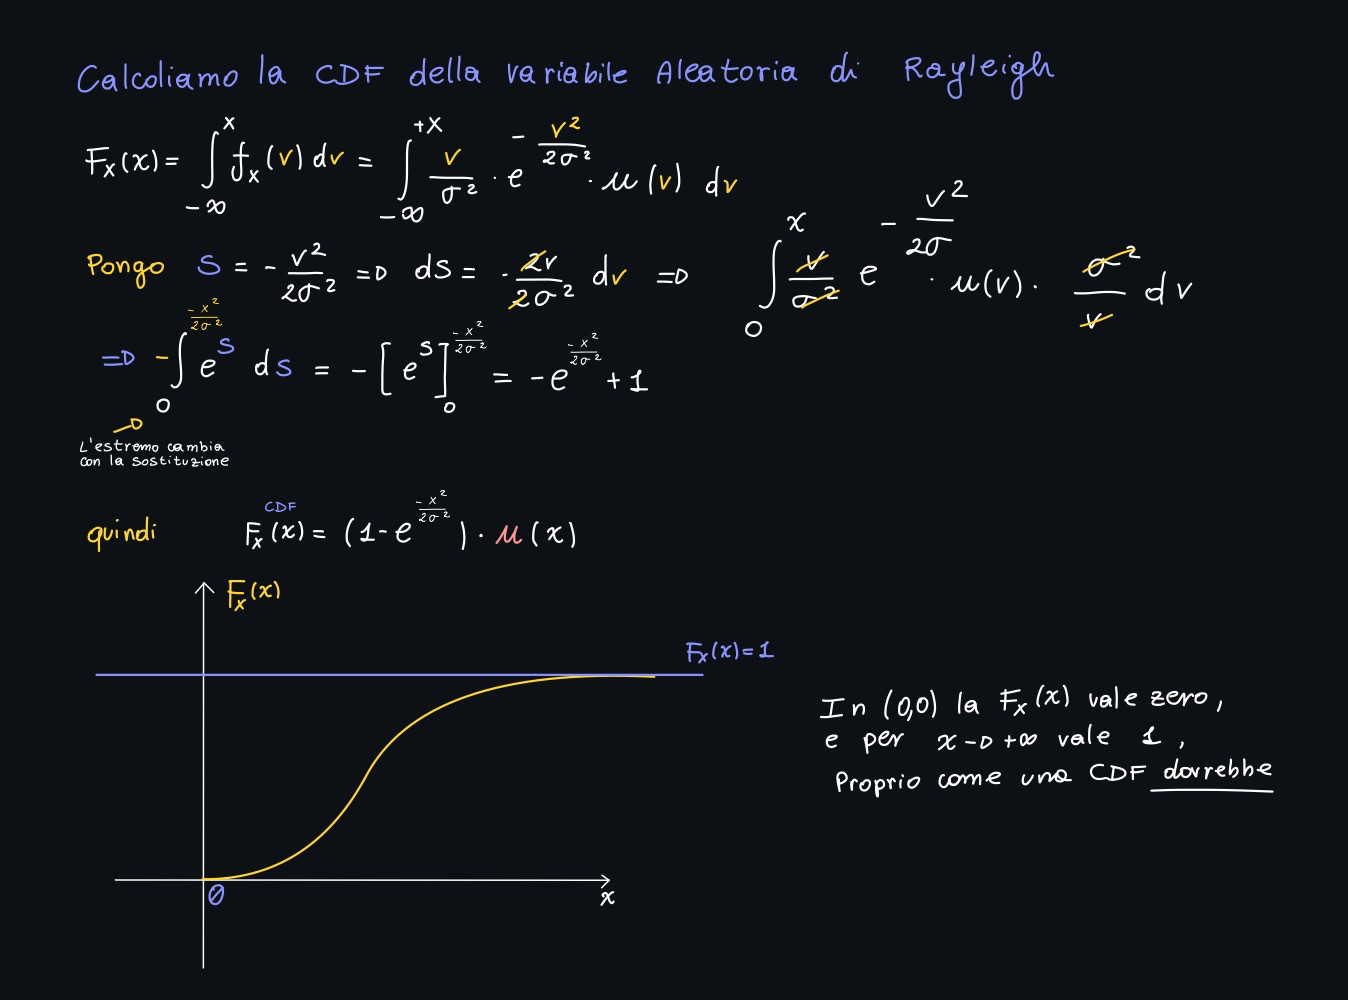 Calcoliamo la CDF della variabile Aleatoria di Rayleigh
Fₓ(x) = ∫_{-∞}^{x} fₓ(v) dv = ∫_{-∞}^{+x} v/σ² · e^{-v²/2σ²} · u(v) dv
Pongo S = -v²/2σ² => dS = -2v/2σ² dv => ∫_{0}^{x} v/σ² e^{-v²/2σ} · u(v) · σ²/v dv
=> -∫_{0}^{-x²/2σ²} e^S dS = -[e^S]_{0}^{-x²/2σ²} = -e^{-x²/2σ²} + 1
L'estremo cambia
con la sostituzione
CDF
quindi Fₓ(x) = (1-e^{-x²/2σ²}) · u(x)
Fₓ(x)
Fₓ(x)=1
In (0,0) la Fₓ(x) vale zero,
e per x→+∞ vale 1,
Proprio come una CDF dovrebbe
0
x